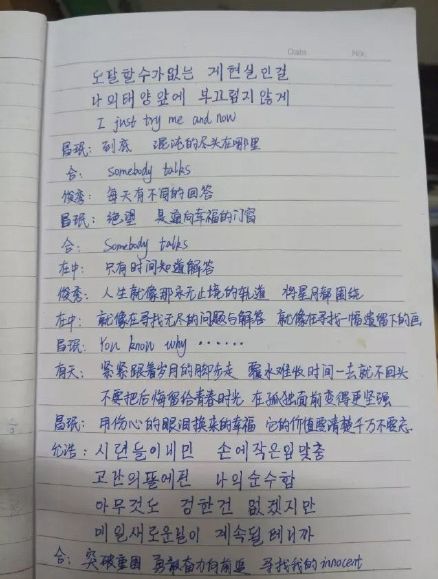 Date No.
도달할수가없는 게현실인걸
나의태양앞에 부끄럽지않게
I just try me and now
昌珉: 到底 混沌的尽头在哪里
合: Somebody talks
俊秀: 每天有不同的回答
昌珉: 绝望 是通向幸福的门窗
合: Somebody talks
在中: 只有时间知道解答
俊秀: 人生就像那永无止境的轨道 将星月都围绕
在中: 就像在寻找无尽的问题与解答 就像在寻找一幅遗留下的画
昌珉: You know why ……
有天: 紧紧跟着岁月的脚步走 覆水难收时间一去就不回头
不要把后悔留给青春时光 在孤独面前变得更坚强
昌珉: 用伤心的眼泪换来的幸福 它的价值要清楚千万不要忘
允浩: 시련들이내민 손에작은입맞춤
고난의품에전 나의순수함
아무것도 정한건 없겠지만
매일새로운일이 계속될테니까
合: 突破重围 勇敢奋力向前 寻找我的innocent